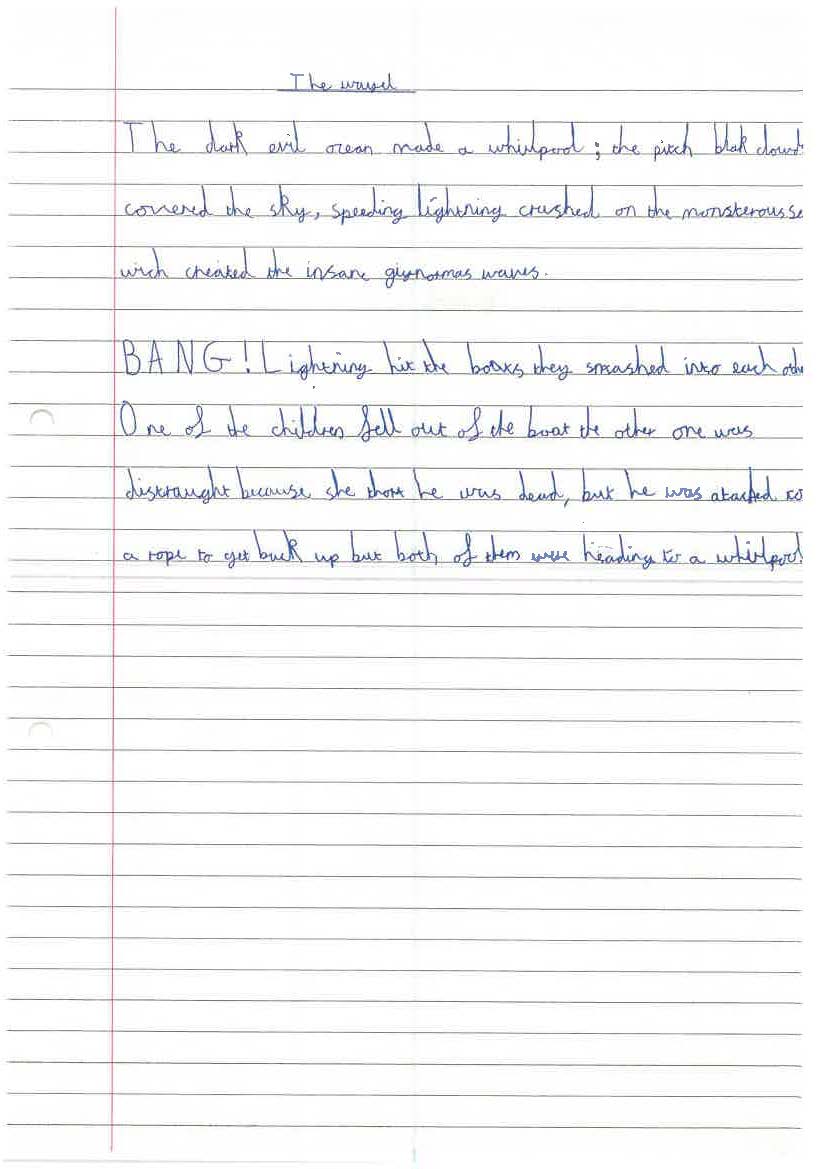 The
The dark evil ocean made a whirlpool; the pitch blak clouds
covered the sky, speeding lightning crashed on the monsterous se
wich created the insane waves.
BANG! Lightning hit the boats they smashed into each othe
One of the children fell out of the boat the other one was
distraught because she thort he was dead, but he was atached to
a rope to get back up but both of them were heading to a whirlpool.